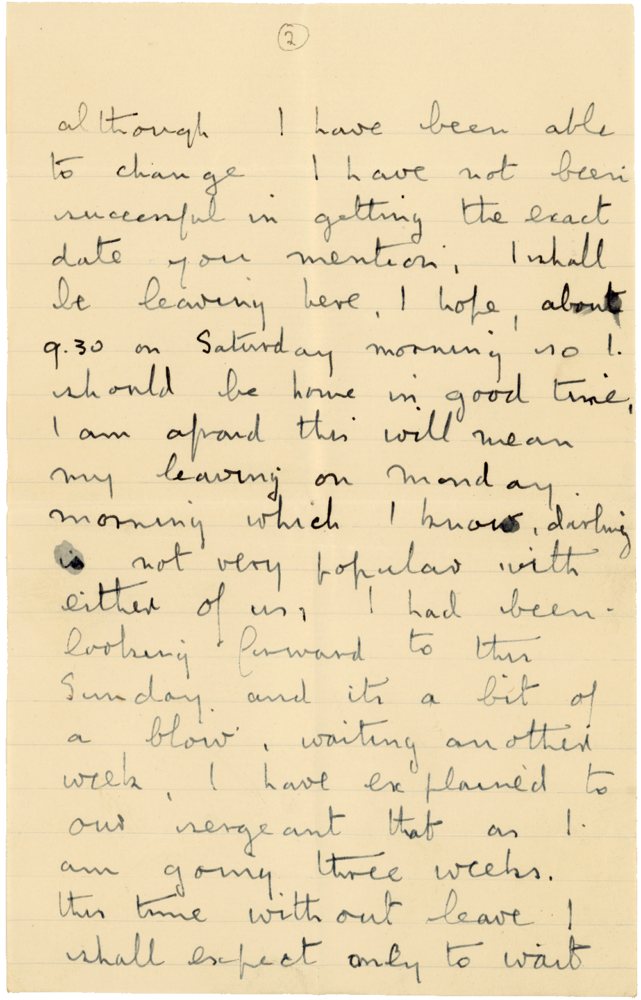 2
although I have been able
to change I have not been
successful in getting the exact
date you mention, I shall
be leaving here, I hope, about
9.30 on Saturday morning so I
should be home in good time,
I am afraid this will mean
my leaving on Monday
morning which I know, darling
is not very popular with
either of us, I had been
looking forward to this
Sunday and its a bit of
a blow, waiting another
week, I have explained to
our sergeant that as I
am going three weeks.
this time without leave I
shall expect only to wait